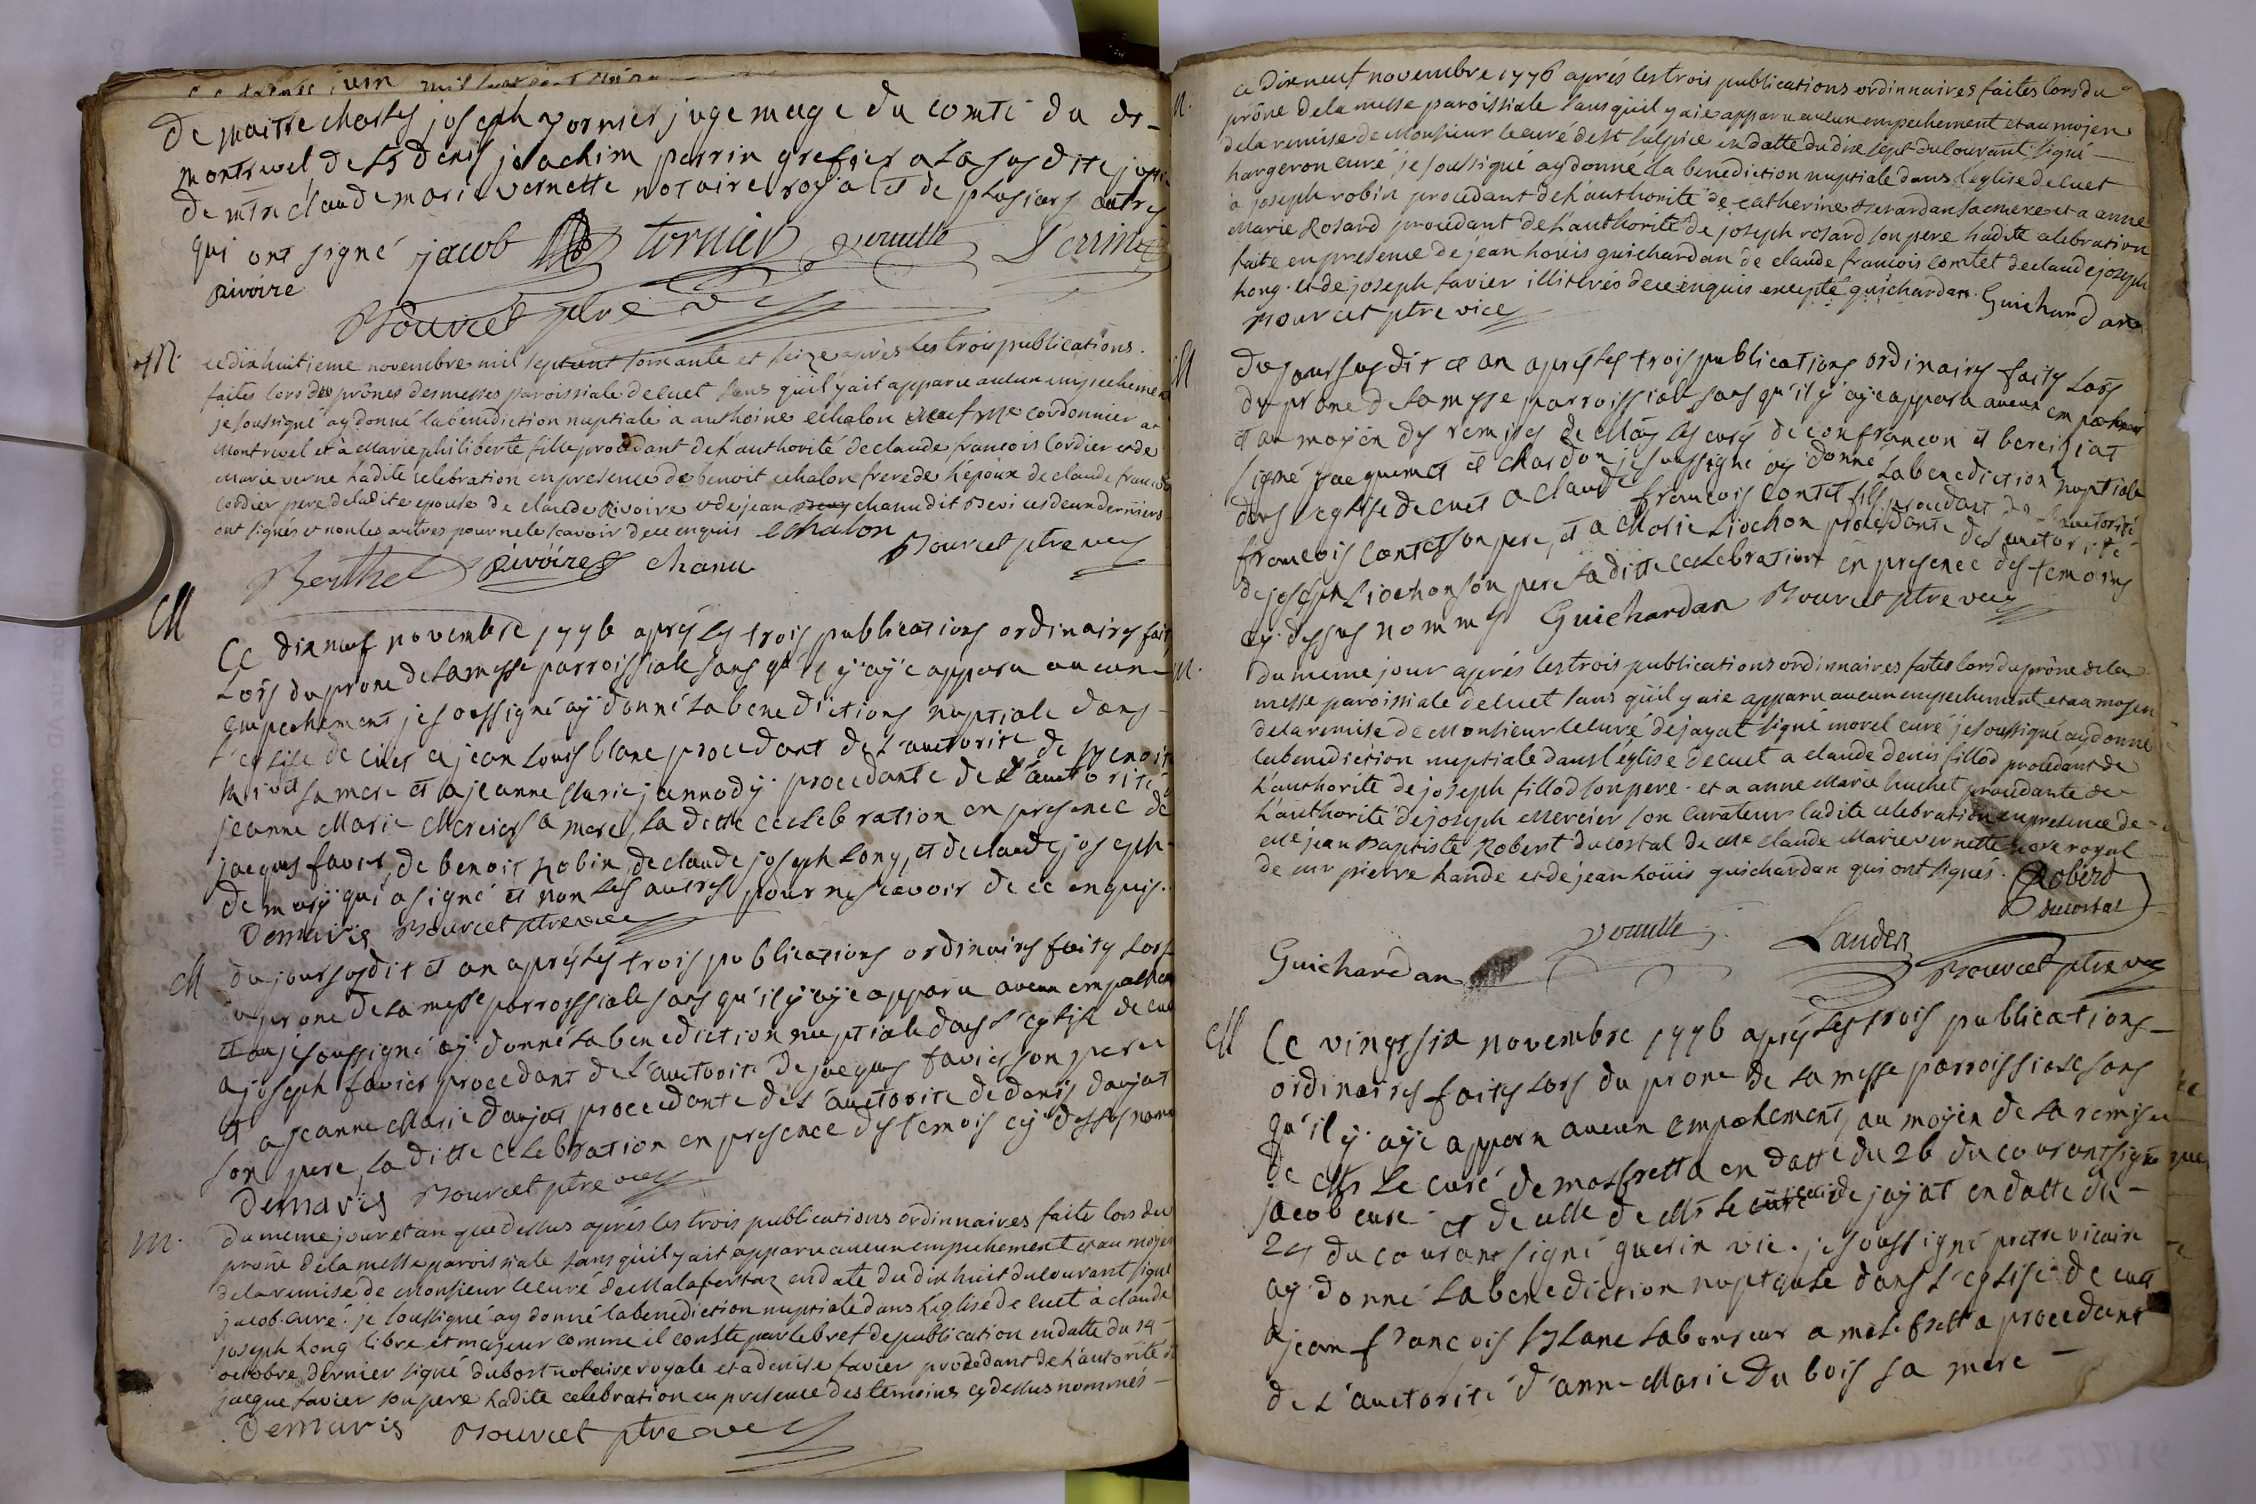 de maitre charles joseph tornier juge mage du comté du de
montrevel, de Sr denis joachim perrin grefier a la susdite juge
de mtre claude marie vernette notaire royal et de plusieurs autres
qui ont signé jacob tornier vernette Perrin
rivoire
Bourcet ptre vic
M.
ce dixhuitieme novembre mil sept cent soixante et seize après les trois publications.
faites lors des prônes des messes paroissiale de cuet sans qu'il y ait apparu aucun empecheme
je soussigné ay donné la benediction nuptiale a anthoine echalon cordonnier a
Montrevel et à Marie philiberte fille procedant de l'authorité de claude francois Cordier et de
Marie verne ladite celebration en presence de benoit echalon frere de l'époux de claude francois
Cordier pere de ladite epouse de claude Rivoire et de jean chanu dit Bevi ces deux derniers
ont signés et non les autres pour ne le scavoir de ce enquis echalon
Berthet rivoire chanu Bourcet ptre vic
M
Ce dixneuf novembre 1776 aprés les trois publications ordinaires fait
Lors du prone de la messe parroissiale sans qu'il y aye apparu aucun
empechement je soussigné ay donné la benedictions nuptiale dans
l'eglise de cuet a jean Louis blanc procedant de l'auctorité de benoite
sa mere et a jeanne Marie jannody procedante de l'auctorité
jeanne Marie Mercier sa mere, la ditte celebration en presence de
jacques favier, de benoit Robin, de claude joseph Long, et de claude joseph
de mary qui a signé et non les autres pour ne scavoir de ce enquis.
Demaris Bourcet ptre vic
M
du jour susdit et an aprés les trois publications ordinaires faites Lors
du prone de la messe parroissiale sans qu'il y aye apparu aucun empechem
et an je soussigné ay donné la benediction nuptiale dans l'eglise de cuet
a joseph favier procedant de l'auctorité de jacques favier son pere
et a jeanne Marie daujat procedante de l'auctorité de denis daujat
son pere, la ditte celebration en presence des temois cy dessus nomm
Demaris Bourcet ptre vic
M.
du meme jour et an que dessus aprés les trois publications ordinnaires faite lors du
prône de la messe paroissiale sans qu'il y ait apparu aucun empechement et au moyen
de la remise de Monsieur le curé de Malafertaz en date du dix huit du courant signé
jacob. curé. je soussigné ay donné la benediction nuptiale dans l'eglise de cuet à claude
joseph Long libre et majeur comme il conste par le bref de publication en datte du 14
octobre dernier signé dubost notaire royale et a denise favier procedant de l'autorité de
jacque favier son pere ladite celebration en presence des temoins cy dessus nommés
Demaris Bourcet ptre vic
M.
Ce Dixneuf novembre 1776 aprés les trois publications ordinnaires faites lors du
prône de la messe paroissiale sans qu'il y aie apparu aucun empechement et au mojen
de la remise de Monsieur le curé de st sulpice en datte du dix sept du courant signé
hargeron curé je soussigné ay donné la benediction nuptiale dans l'eglise de cuet
a joseph robin procedant de l'authorité de catherine sa mere et a anne
Marie Rosard procedant de l'authorité de joseph rosard son pere ladite celebration
faite en presence de jean Louis guichardan de claude francois Comtet de claude joseph
Long. et de joseph favier illiterés de ce enquis excepté guichardan. Guichardan
Bourcet ptre vice
M
du jour susdit et an aprés les trois publications ordinaires faites Lors
du prone de la messe parroissiale sans qu'il y aye apparu aucun empechement
et au moyen des remises de Mrs les curés de confrancon et bereisiat
signé jacquemet et chardon, je soussigné ay donné la benediction nuptiale
dans l'eglise de cuet a claude francois contet fils procedant de l'auctorité
francois contet son pere, et a Marie Liochon procedante de l'auctorité
de joseph Liochon son pere la ditte celebration en presence des temoins
cy dessus nommes Guichardan Bourcet ptre vic
M.
du meme jour aprés les trois publications ordinnaires faites lors du prône de la
messe paroissiale de cuet sans qu'il y aie apparu aucun empechement et au mojen
de la remise de Monsieur le curé de jayat signé morel curé je soussigné ay donné
la benediction nuptiale dans l'église de cuet a claude denis fillod procedant de
l'authorité de joseph fillod son pere. et a anne Marie huchet procedante de
l'authorité de joseph Mercier son curateur ladite celebration en presence de
Me jean Baptiste Robert ducostal de Me claude Marie vernette royal
de sur pierre Lande et de jean Loüis guichardan qui ont signés. Robert
ducostal
Guichardan vernette Lande Bourcet ptre vic
M
Ce vingt six novembre 1776 aprés les trois publications
ordinaires faites Lors du prone de la messe parroissiale sans
qu'il y aye apparu aucun empechement, au moyen de la remise
de Mr Le curé de malfretta en datte du 26 du courant signé
jacob curé et de celle de Mr Le curé de jayat en datte du
24 du courant signé guerin vic. je soussigné pretre vicaire
ay donné la benediction nuptiale dans l'eglise de cuet
a jean francois Blanc laboureur a malefretta procedant
de l'auctorité d'anne Marie Du bois sa mere